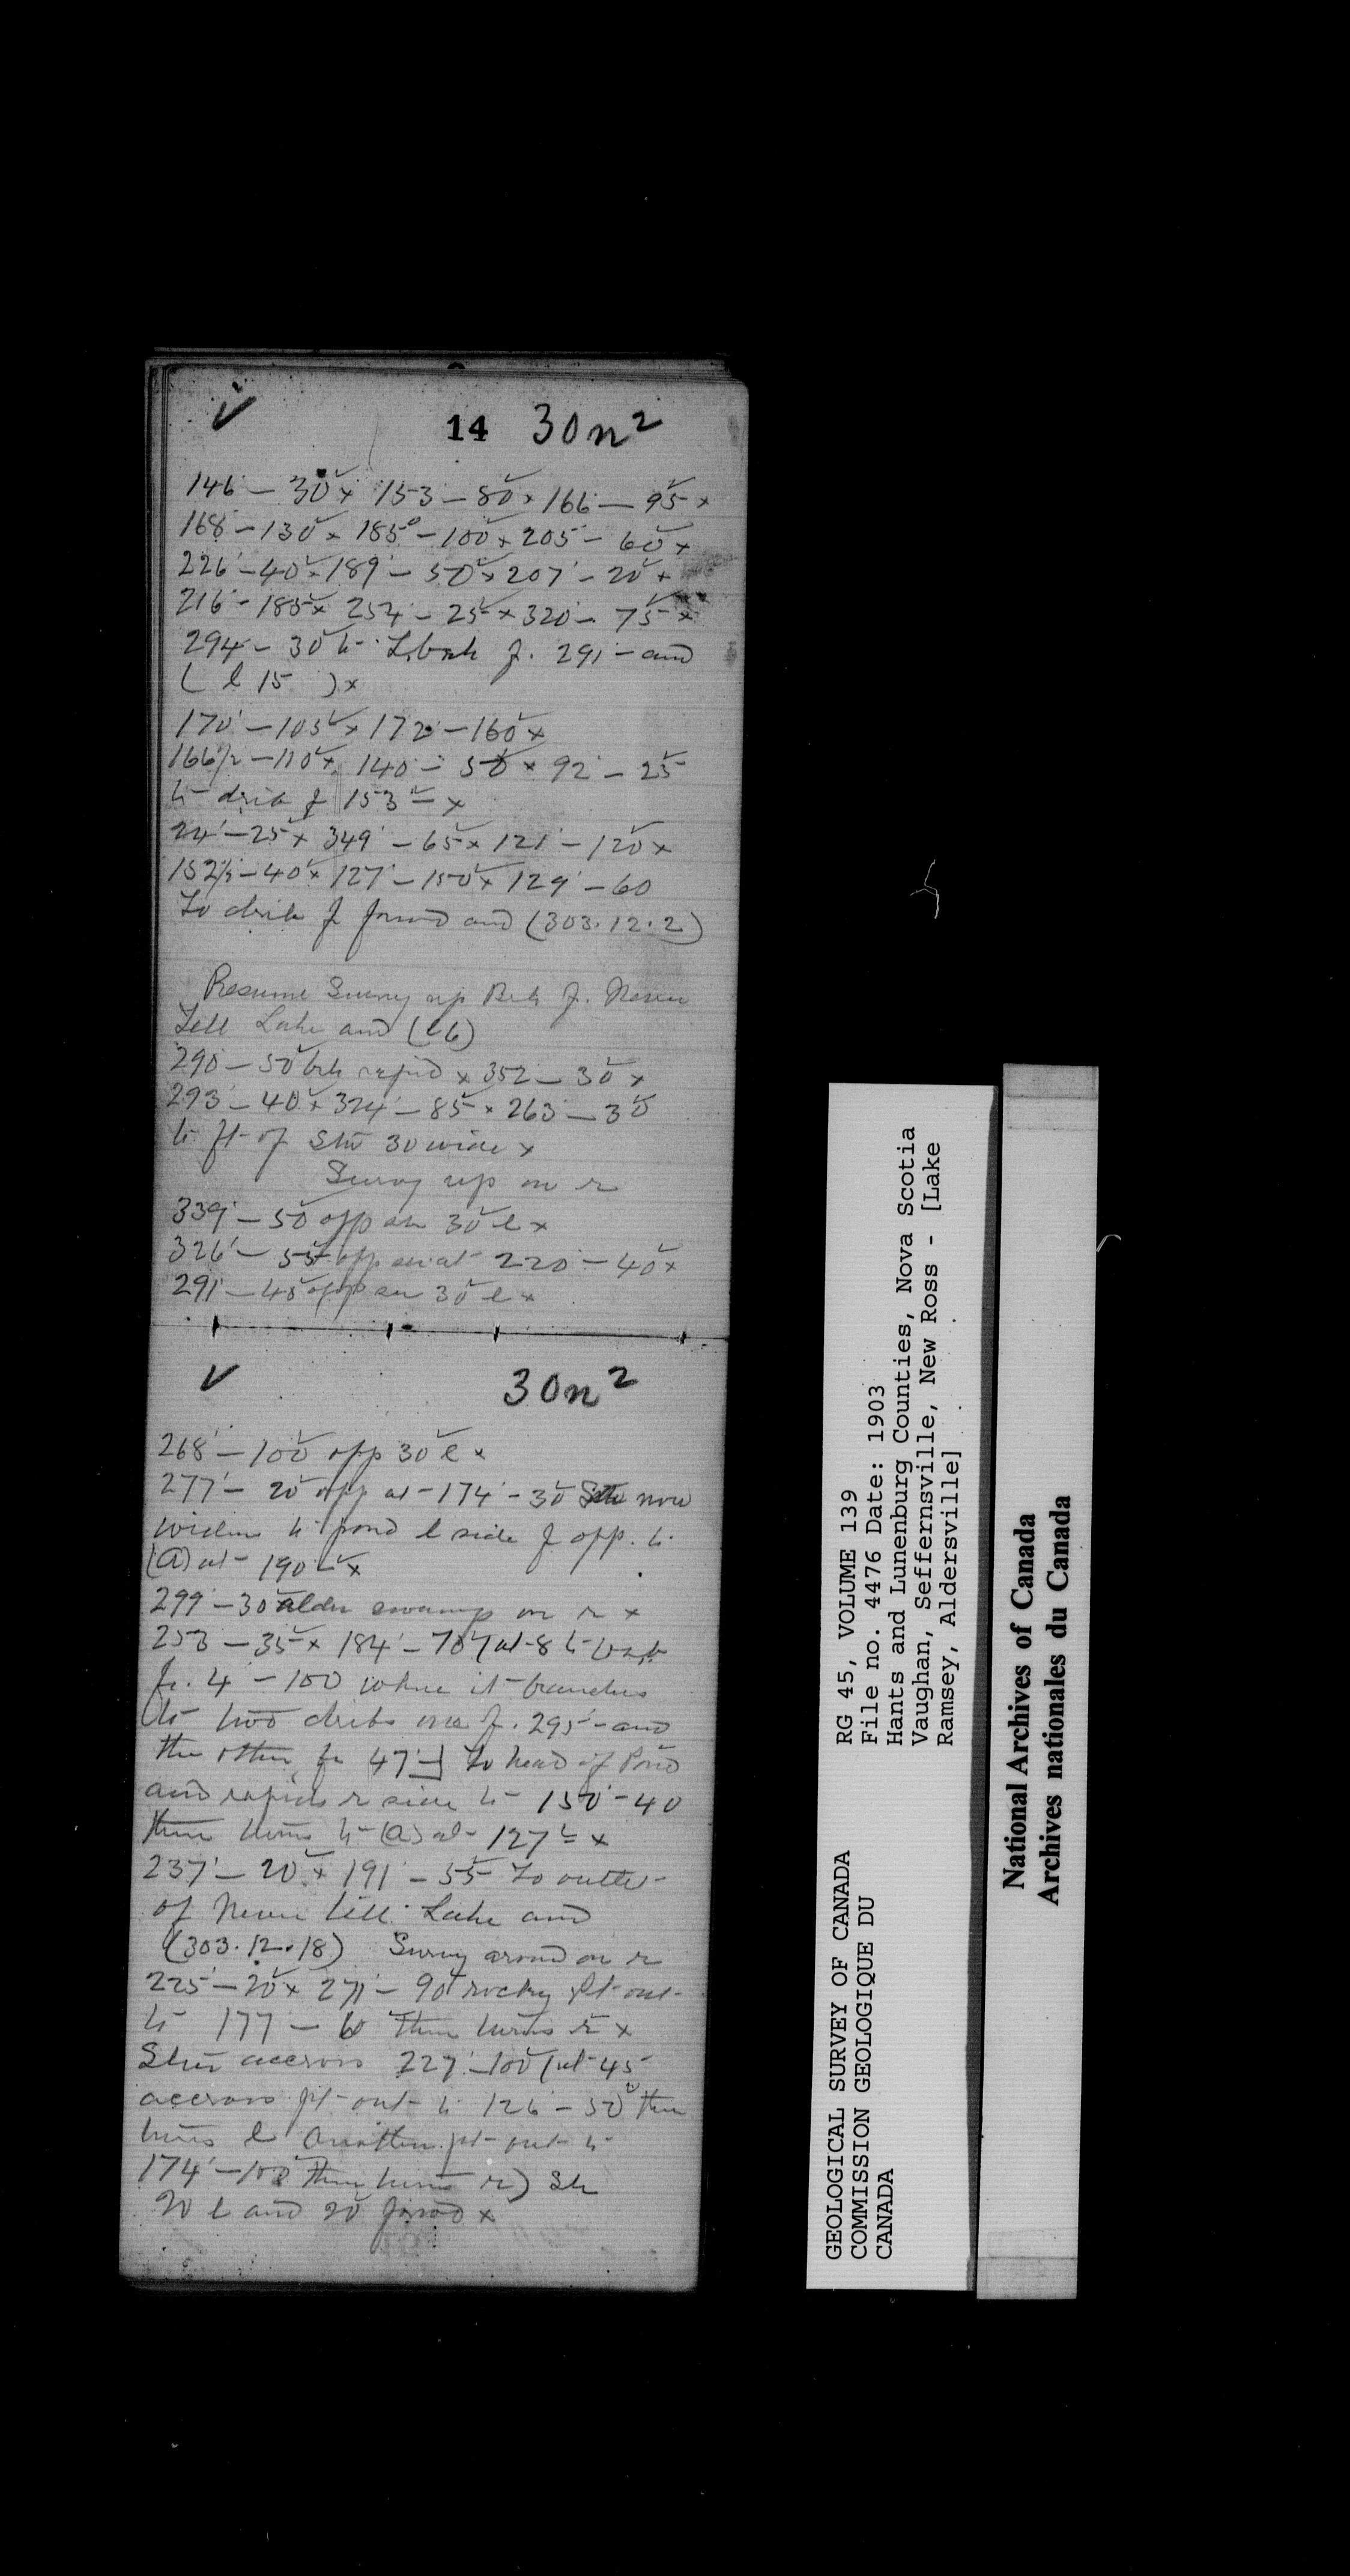 ✓ 14 30n²
146 – 30 x 153 – 80 x 166 – 95 x
168 – 130 x 185° – 100 x 205 – 60 x
226 – 40 x 189 – 50 x 207 – 20 x
216 – 185 x 254 – 25 x 320 – 75 x
294 – 30 f. 291 – and
( l 15 ) x
170 – 105 x 172 – 160 x
166½ – 110 x 140 – 50 x 92 – 25
153 – x
24 – 25 x 349 – 65 x 121 – 120 x
152½ – 40 x 127 – 150 x 129 – 60
To f and (303.12.2)
Resume Survey up f. Never
Tell Lake and (l6)
290 – 50 rapid x 352 – 30 x
293 – 40 x 324 – 85 x 263 – 30
ft of Stw 30 wide x
Survey up on r
339 – 50 opp 30 l x
326 – 55 opp at 220 – 40 x
291 – 45 opp 30 l x
✓ 30n²
268 – 100 opp 30 l x
277 – 20 opp at 174 – 30 Stw now
widens to pond l side f opp. to
(a) at 190 – x
299 – 30 alder swamp on r x
253 – 35 x 184 – 70 [at 8
fr. 4 – 100 where it branches
to two one f. 295 – and
the other fr 47 –] To head of Pond
and rapids r side to 150 – 40
then turns to (a) at 127 – x
237 – 20 x 191 – 55 To outlet
of Never tell Lake and
(303.12.18) Survey around on r
225 – 20 x 271 – 90 rocky pt out
to 177 – 60 then turns r x
accross 227 – 100 (at 45
accross pt out to 126 – 50 then
turns l Another pt out to
174 – 100 then turns r)
20 l and 20 x
RG 45, VOLUME 139
File no. 4476 Date: 1903
Hants and Lunenburg Counties, Nova Scotia
Vaughan, Seffernsville, New Ross - [Lake
Ramsey, Aldersville]
GEOLOGICAL SURVEY OF CANADA
COMMISSION GEOLOGIQUE DU
CANADA
National Archives of Canada
Archives nationales du Canada